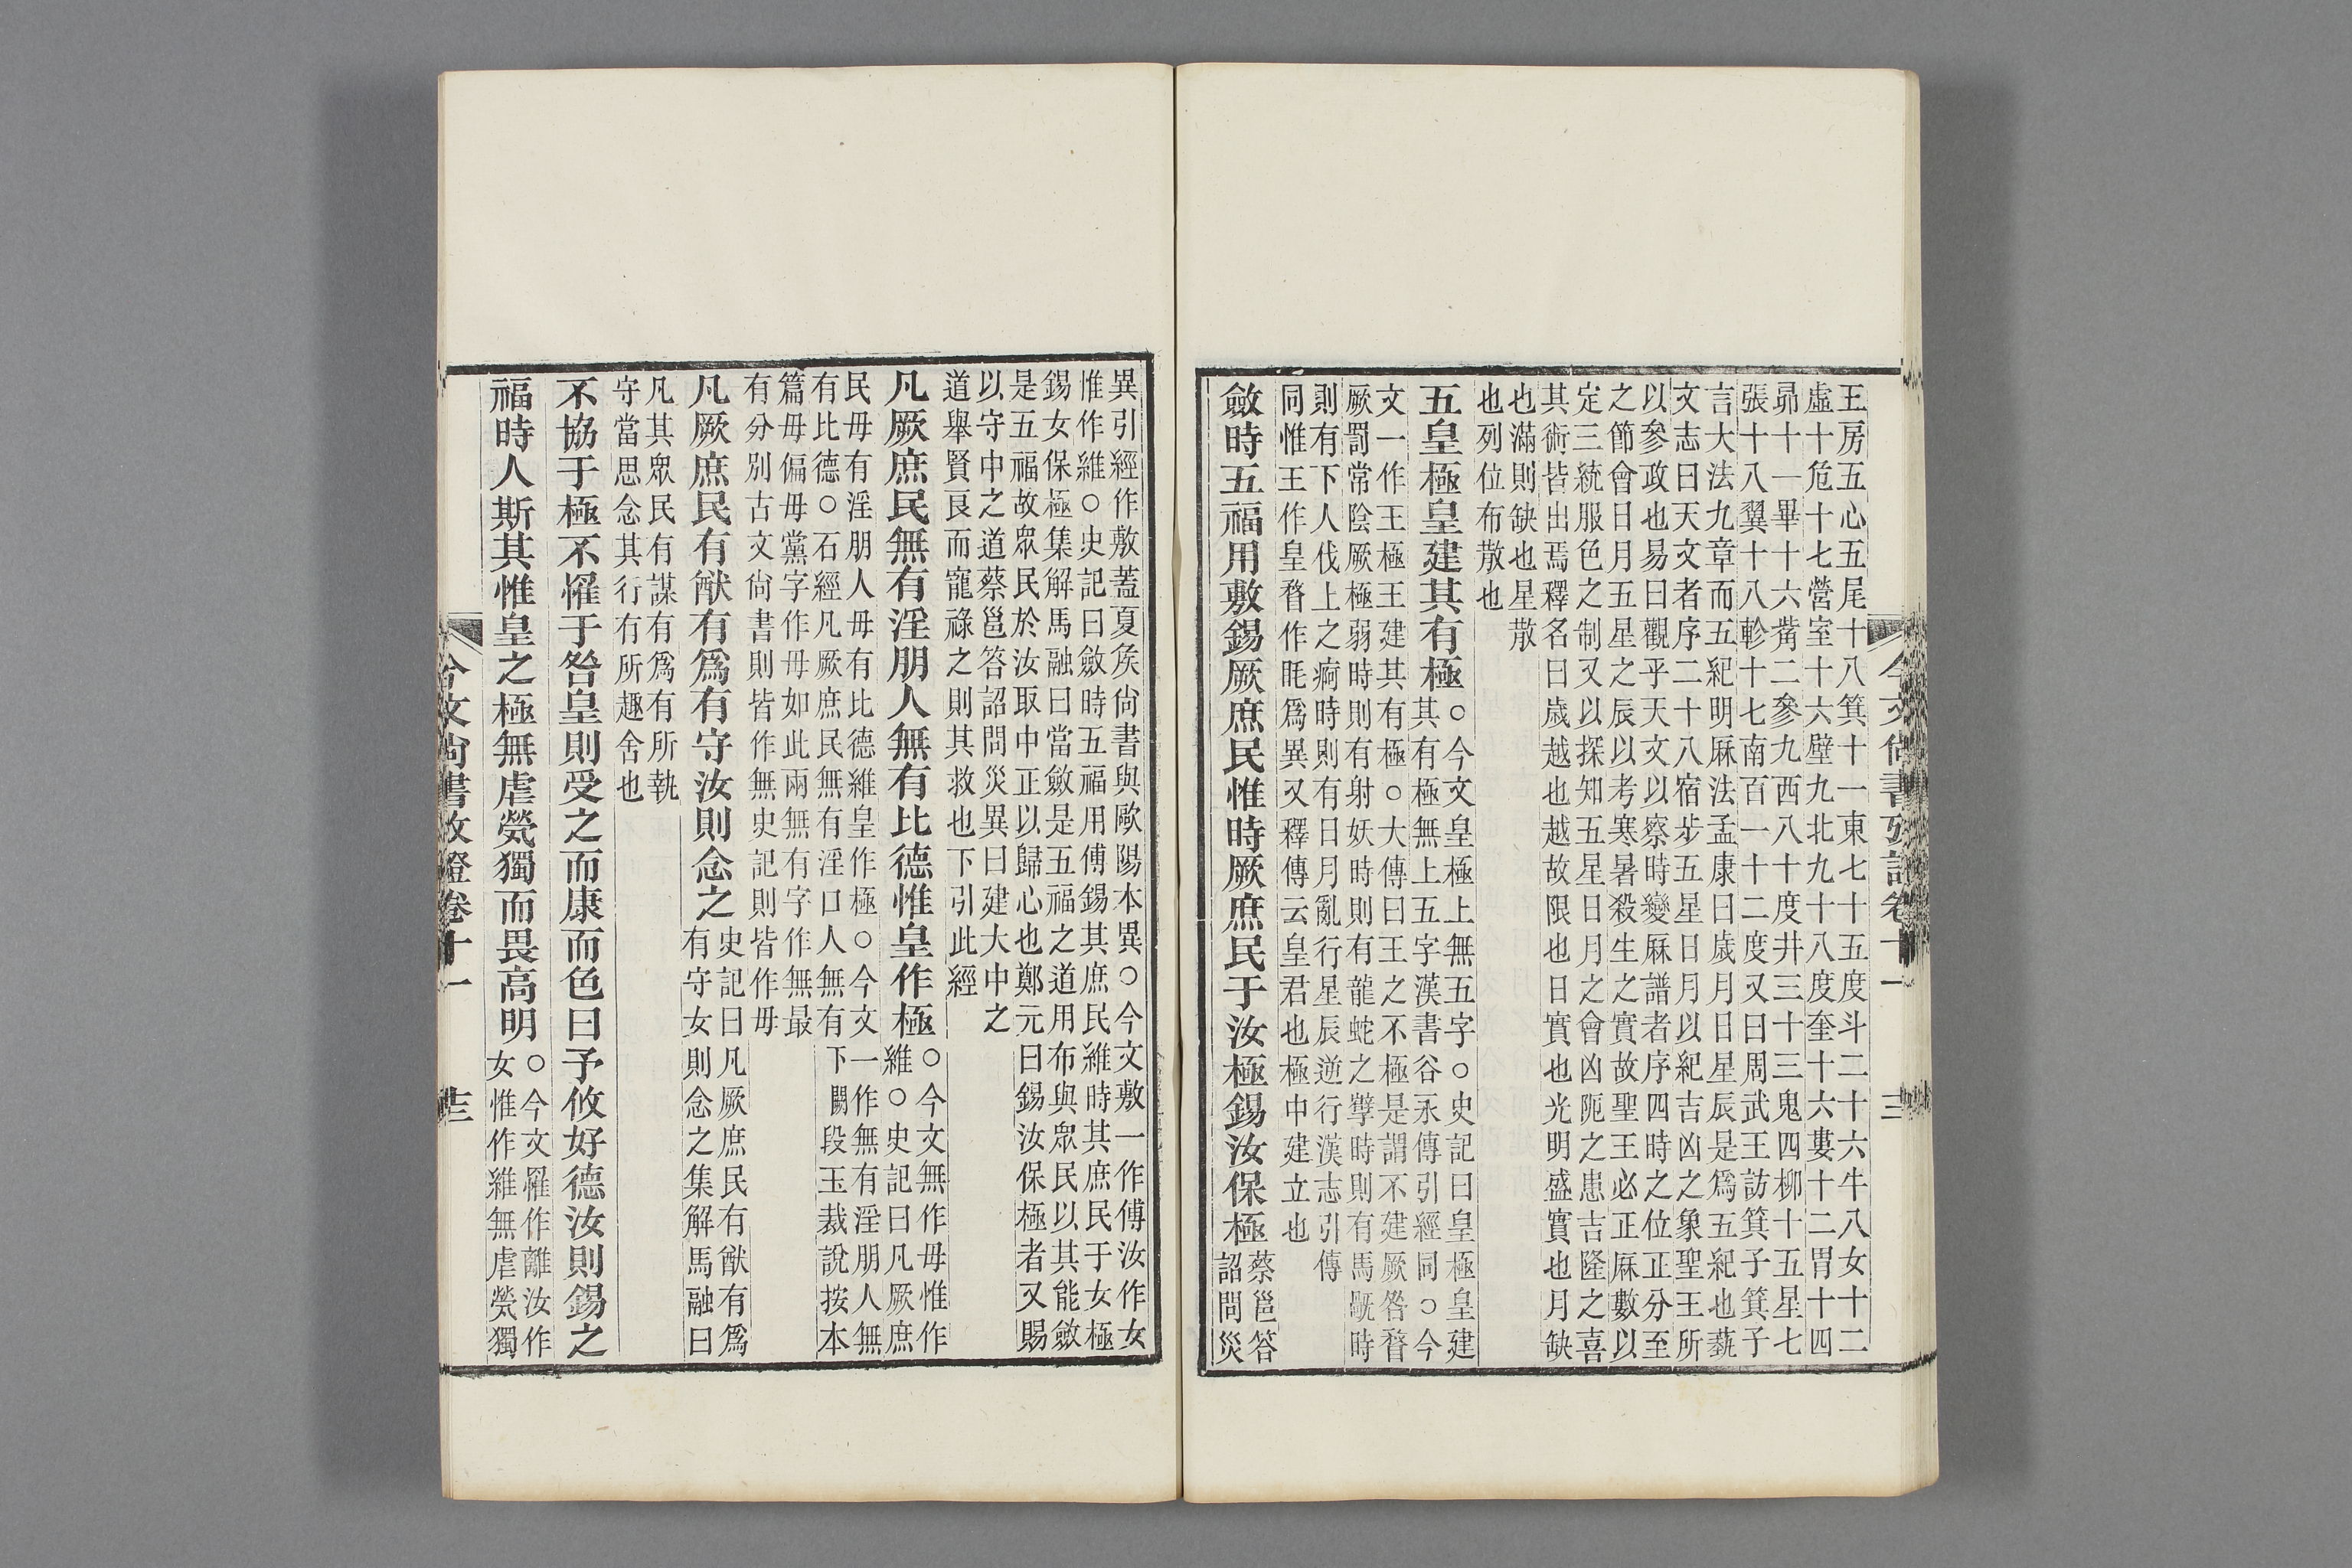 王房五心五尾十八箕十一東七十五度斗二十六牛八女十二
虛十危十七營室十六壁九北九十八度奎十六婁十二胃十四
昴十一畢十六觜二參九西八十度井三十三鬼四柳十五星七
張十八翼十八軫十七南百一十二度又曰周武王訪箕子箕子
言大法九章而五紀明厤法孟康曰歲月日星辰是爲五紀也蓺
文志曰天文者序二十八宿步五星日月以紀吉凶之象聖王所
以參政也易曰觀乎天文以察時變厤譜者序四時之位正分至
之節會日月五星之辰以考寒暑殺生之實故聖王必正厤數以
定三統服色之制又以探知五星日月之會凶阨之患吉隆之喜
其術皆出焉釋名曰歲越也越故限也日實也光明盛實也月缺
也滿則缺也星散
也列位布散也
五皇極皇建其有極○今文皇極上無五字○史記曰皇極皇建
其有極無上五字漢書谷永傳引經同○今
文一作王極王建其有極○大傳曰王之不極是謂不建厥咎瞀
厥罰常陰厥極弱時則有射妖時則有龍蛇之孽時則有馬旤時
則有下人伐上之痾時則有日月亂行星辰逆行漢志引傳
同惟王作皇瞀作眊爲異又釋傳云皇君也極中建立也
斂時五福用敷錫厥庶民惟時厥庶民于汝極錫汝保極蔡邕答
詔問災
今文尚書攷證卷十一
異引經作敷蓋夏矦尚書與歐陽本異○今文敷一作傅汝作女
惟作維○史記曰斂時五福用傅錫其庶民維時其庶民于女極
錫女保極集解馬融曰當斂是五福之道用布與眾民以其能斂
是五福故眾民於汝取中正以歸心也鄭元曰錫汝保極者又賜
以守中之道蔡邕答詔問災異曰建大中之
道舉賢良而寵祿之則其救也下引此經
凡厥庶民無有淫朋人無有比德惟皇作極○今文無作毋惟作
維○史記曰凡厥庶
民毋有淫朋人毋有比德維皇作極○今文一作無有淫朋人無
有比德○石經凡厥庶民無有淫口人無有下闕段玉裁說按本
篇毋偏毋黨字作毋如此兩無有字作無最
有分別古文尚書則皆作無史記則皆作毋
凡厥庶民有猷有爲有守汝則念之史記曰凡厥庶民有猷有爲
有守女則念之集解馬融曰
凡其眾民有謀有爲有所執
守當思念其行有所趣舍也
不協于極不罹于咎皇則受之而康而色曰予攸好德汝則錫之
福時人斯其惟皇之極無虐煢獨而畏高明○今文罹作離汝作
女惟作維無虐煢獨
今文尚書攷證卷十一